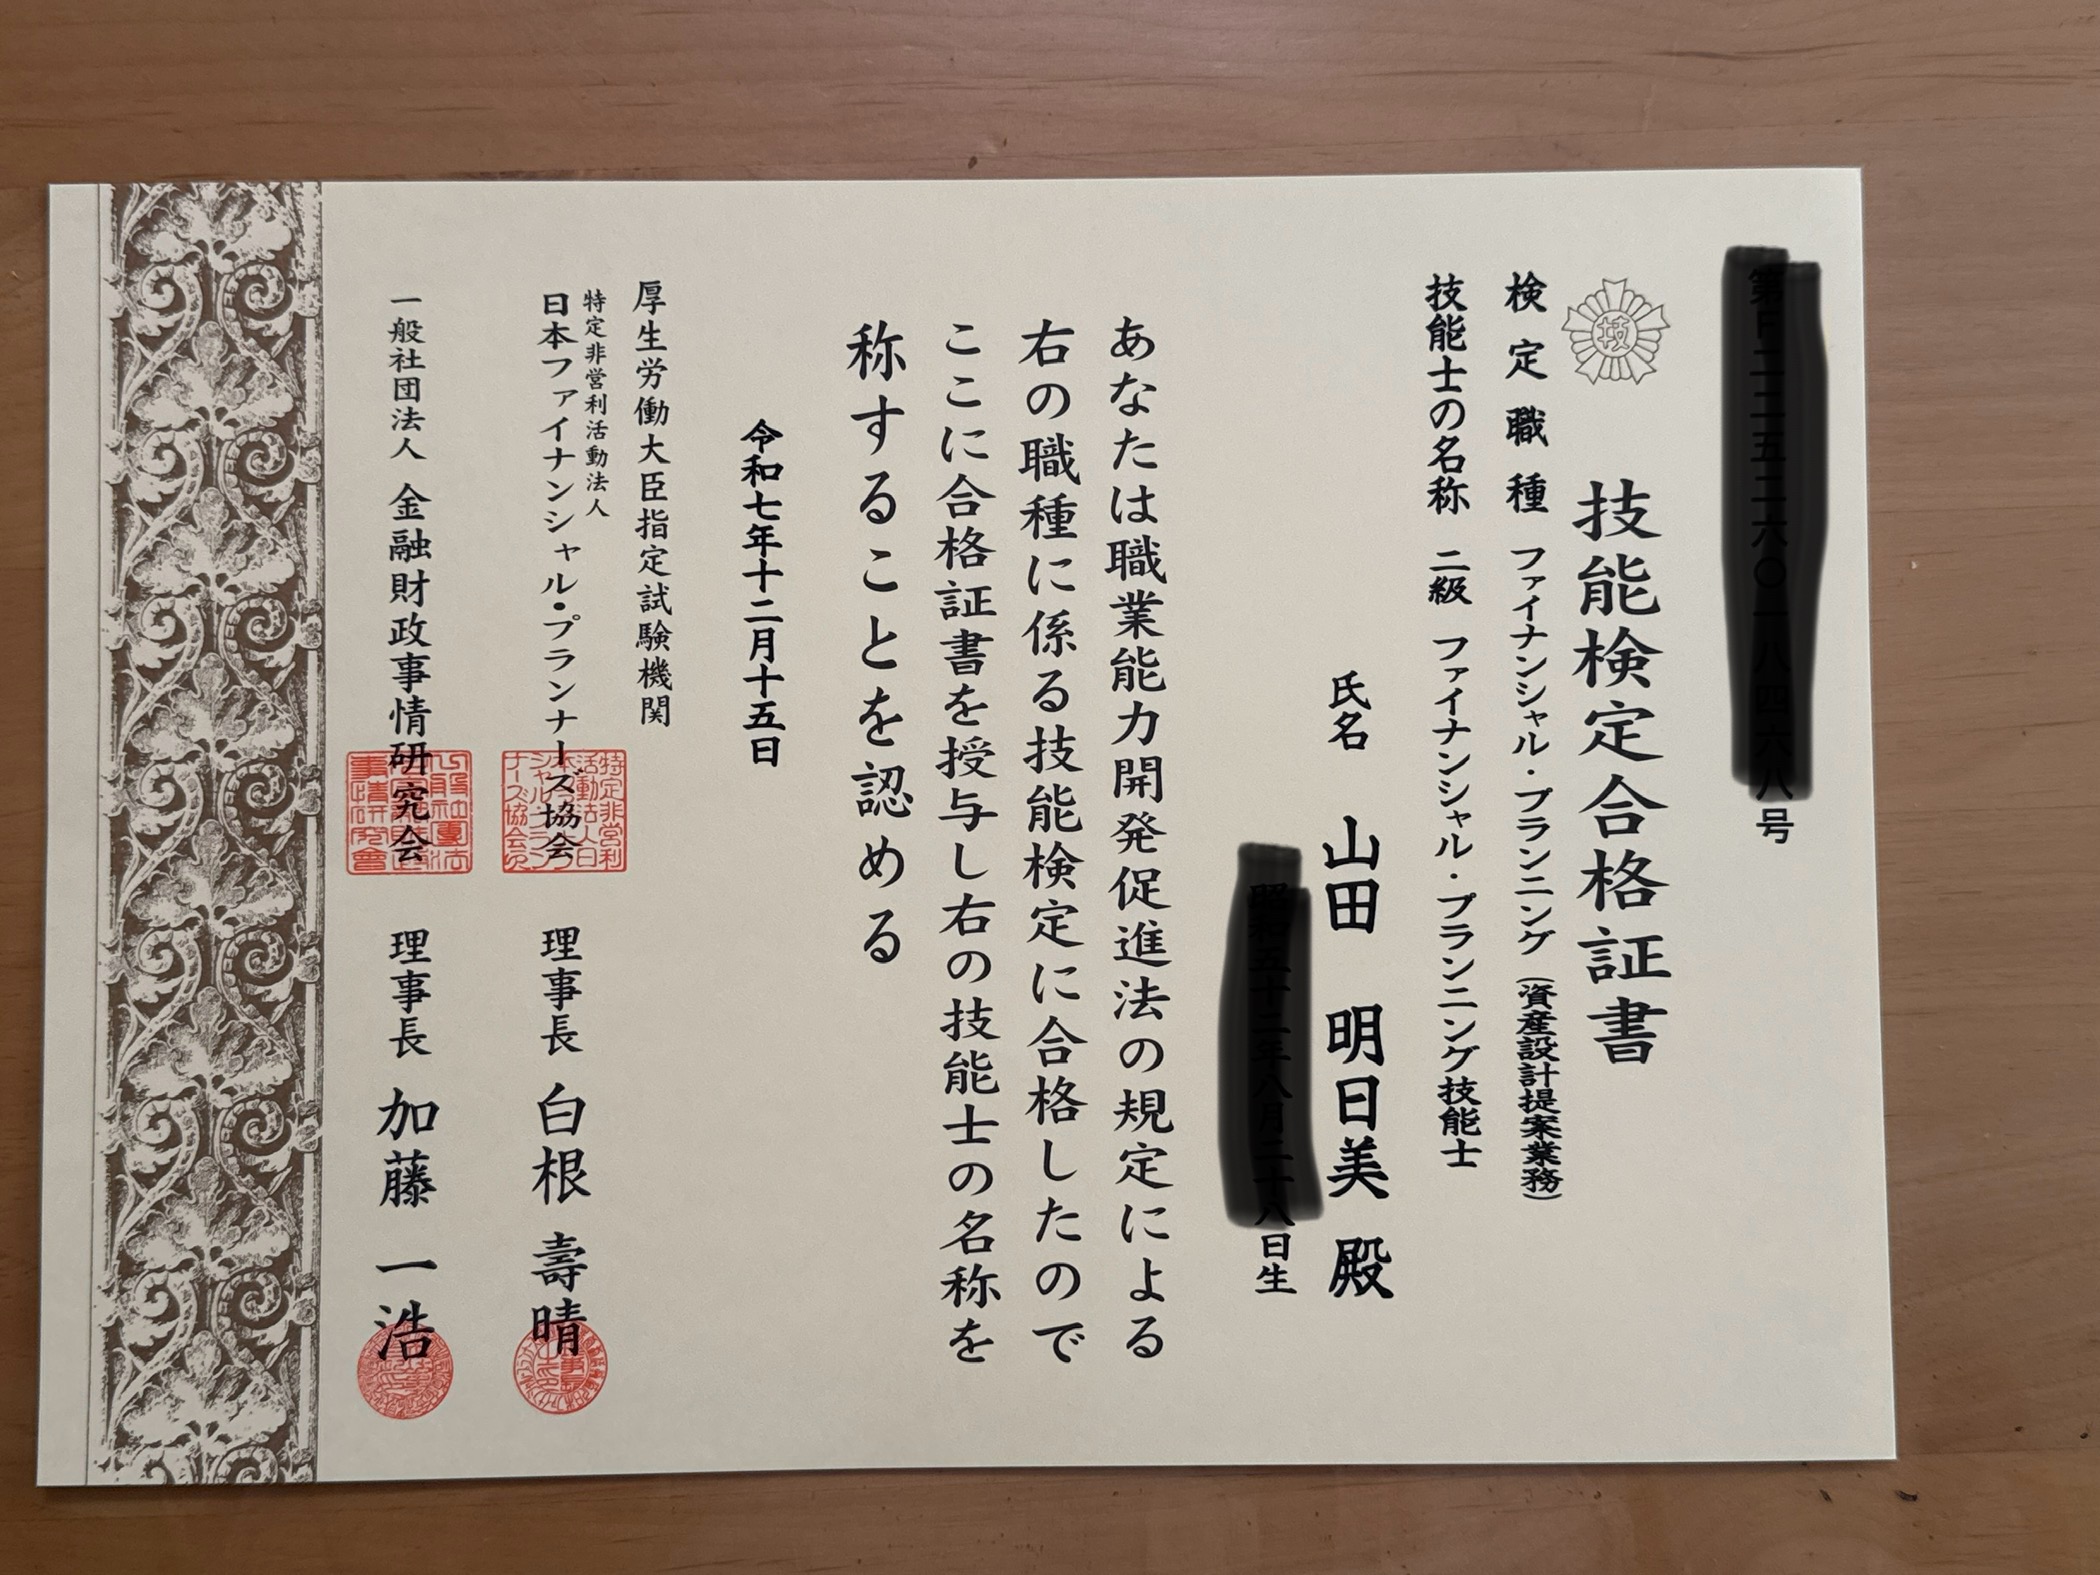 号
技能検定合格証書
技
検定職種 ファイナンシャル・プランニング(資産設計提案業務)
技能士の名称 二級 ファイナンシャル・プランニング技能士
氏名 山田 明日美 殿
日生
あなたは職業能力開発促進法の規定による
右の職種に係る技能検定に合格したので
ここに合格証書を授与し右の技能士の名称を
称することを認める
令和七年十二月十五日
厚生労働大臣指定試験機関
特定非営利活動法人
日本ファイナンシャル・プランナーズ協会 理事長 白根 壽晴
一般社団法人 金融財政事情研究会 理事長 加藤 一浩